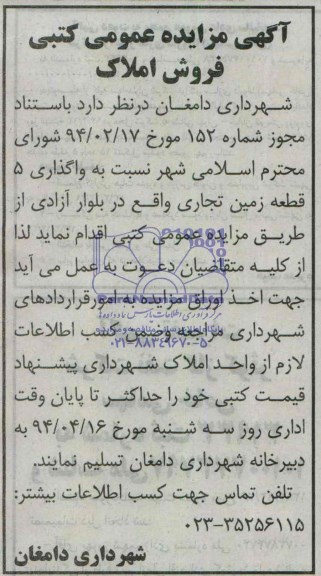 آگهی مزایده عمومی کتبی
فروش املاک
شهرداری دامغان درنظر دارد باستناد
مجوز شماره ۱۵۲ مورخ ۹۴/۰۲/۱۷ شورای
محترم اسلامی شهر نسبت به واگذاری ۵
قطعه زمین تجاری واقع در بلوار آزادی از
طریق مزایده عمومی کتبی اقدام نماید لذا
از کلیه متقاضیان دعوت به عمل می آید
جهت اخذ اوراق مزایده به امورقراردادهای
شهرداری مراجعه وضمن کسب اطلاعات
لازم از واحد املاک شهرداری پیشنهاد
قیمت کتبی خود را حداکثر تا پایان وقت
اداری روز سه شنبه مورخ ۹۴/۰۴/۱۶ به
دبیرخانه شهرداری دامغان تسلیم نمایند.
تلفن تماس جهت کسب اطلاعات بیشتر:
۰۲۳-۳۵۲۵۶۱۱۵
شهرداری دامغان
۰۲۱-۸۸۳۴۹۶۷۰-۵